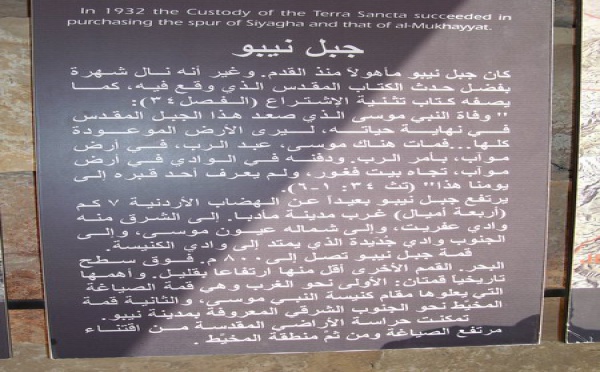 In 1932 the Custody of the Terra Sancta succeeded in
purchasing the spur of Siyagha and that of al-Mukhayyat.
جبل نيبو
كان جبل نيبو مأهولاً منذ القدم. وغير أنه نال شهرة
بفضل حدث الكتاب المقدس الذي وقع فيه، كما
يصفه كتاب تثنية الإشتراع (الفصل ٣٤):
"وفاة النبي موسى الذي صعد هذا الجبل المقدس
في نهاية حياته، ليرى الأرض الموعودة
كلها...فمات هناك موسى، عبد الرب، في أرض
موآب، بأمر الرب. ودفنه في الوادي في أرض
موآب، تجاه بيت فغور، ولم يعرف أحد قبره إلى
يومنا هذا" (تث ٣٤: ١-٦).
يرتفع جبل نيبو بعيداً عن الهضاب الأردنية ٧ كم
(أربعة أميال) غرب مدينة مادبا. إلى الشرق منه
وادي عفريت، وإلى شماله عيون موسى، وإلى
الجنوب وادي جديدة الذي يمتد إلى وادي الكنيسة.
قمة جبل نيبو تصل إلى ٨٠٠ م. فوق سطح
البحر. القمم الأخرى أقل منها ارتفاعا بقليل. وأهمها
تاريخيا قمتان: الأولى نحو الغرب وهي قمة الصياغة
التي يعلوها مقام كنيسة النبي موسى، والثانية قمة
المخيّط نحو الجنوب الشرقي المعروفة بمدينة نيبو.
تمكنت حراسة الأراضي المقدسة من اقتناء
مرتفع الصياغة ومن ثمّ منطقة المخيّط.